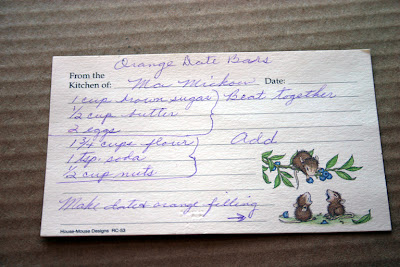 Orange Date Bars
From the
Kitchen of: Ma Mickow Date:
1 cup brown sugar } Beat together
1/2 cup butter
2 eggs
1 3/4 cups flour } Add
1 tsp soda
1/2 cup nuts
Make date & orange filling
→
House-Mouse Designs RC-53